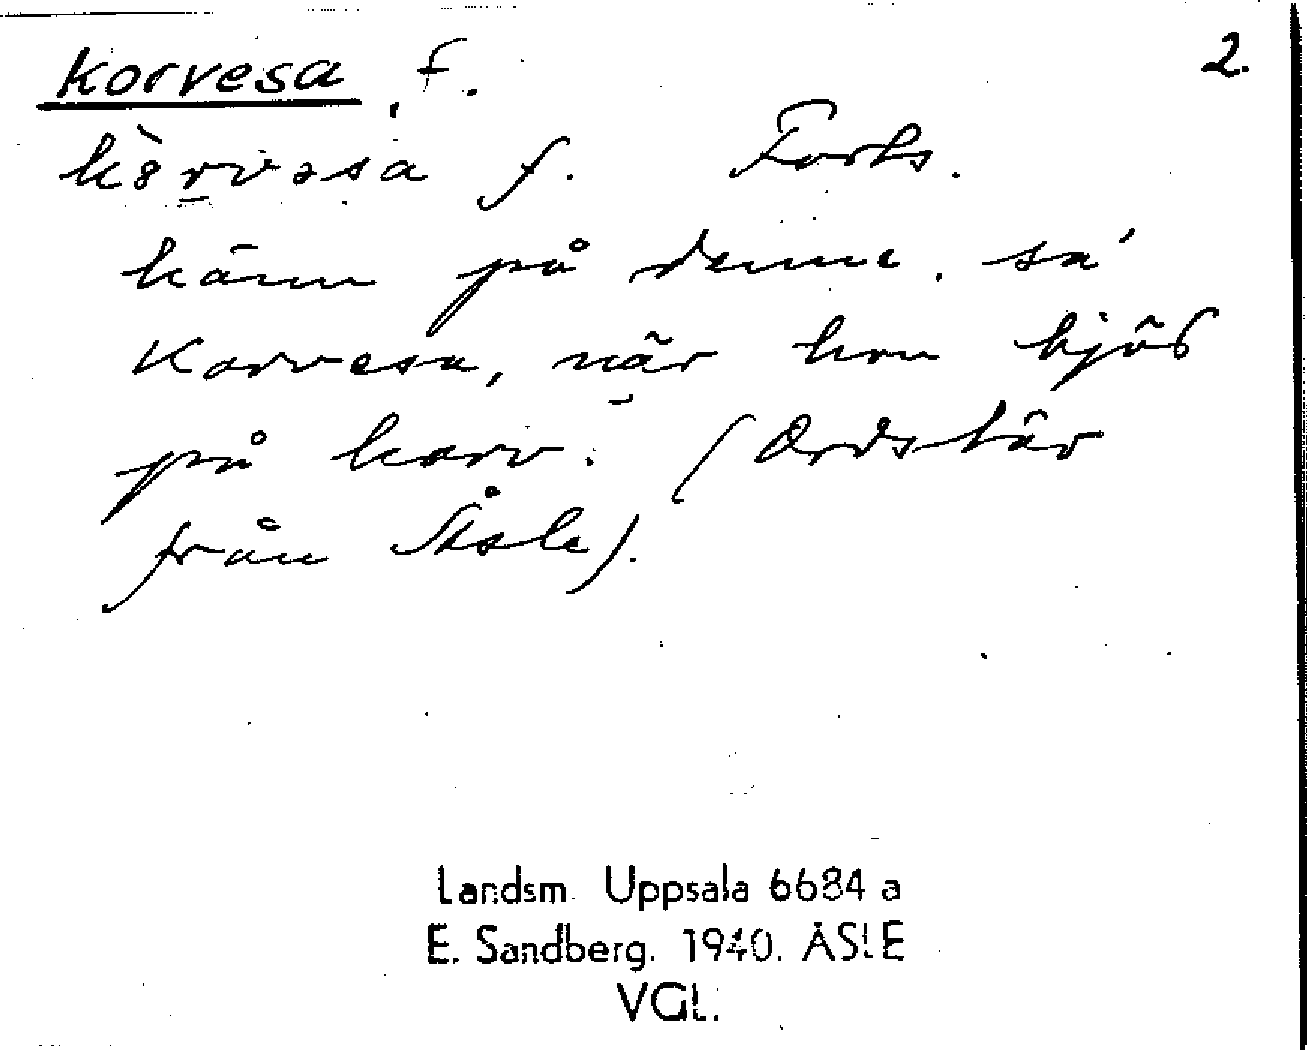 korvesa, f. 2.
kȯ̀rvəsa f. Forts.
känn på denne, sa'
Korvesa, när hon bjöd
på korv. (Ordstäv
från Åsle).
Landsm. Uppsala 6684 a
E. Sandberg. 1940. ÅSLE
VGL.